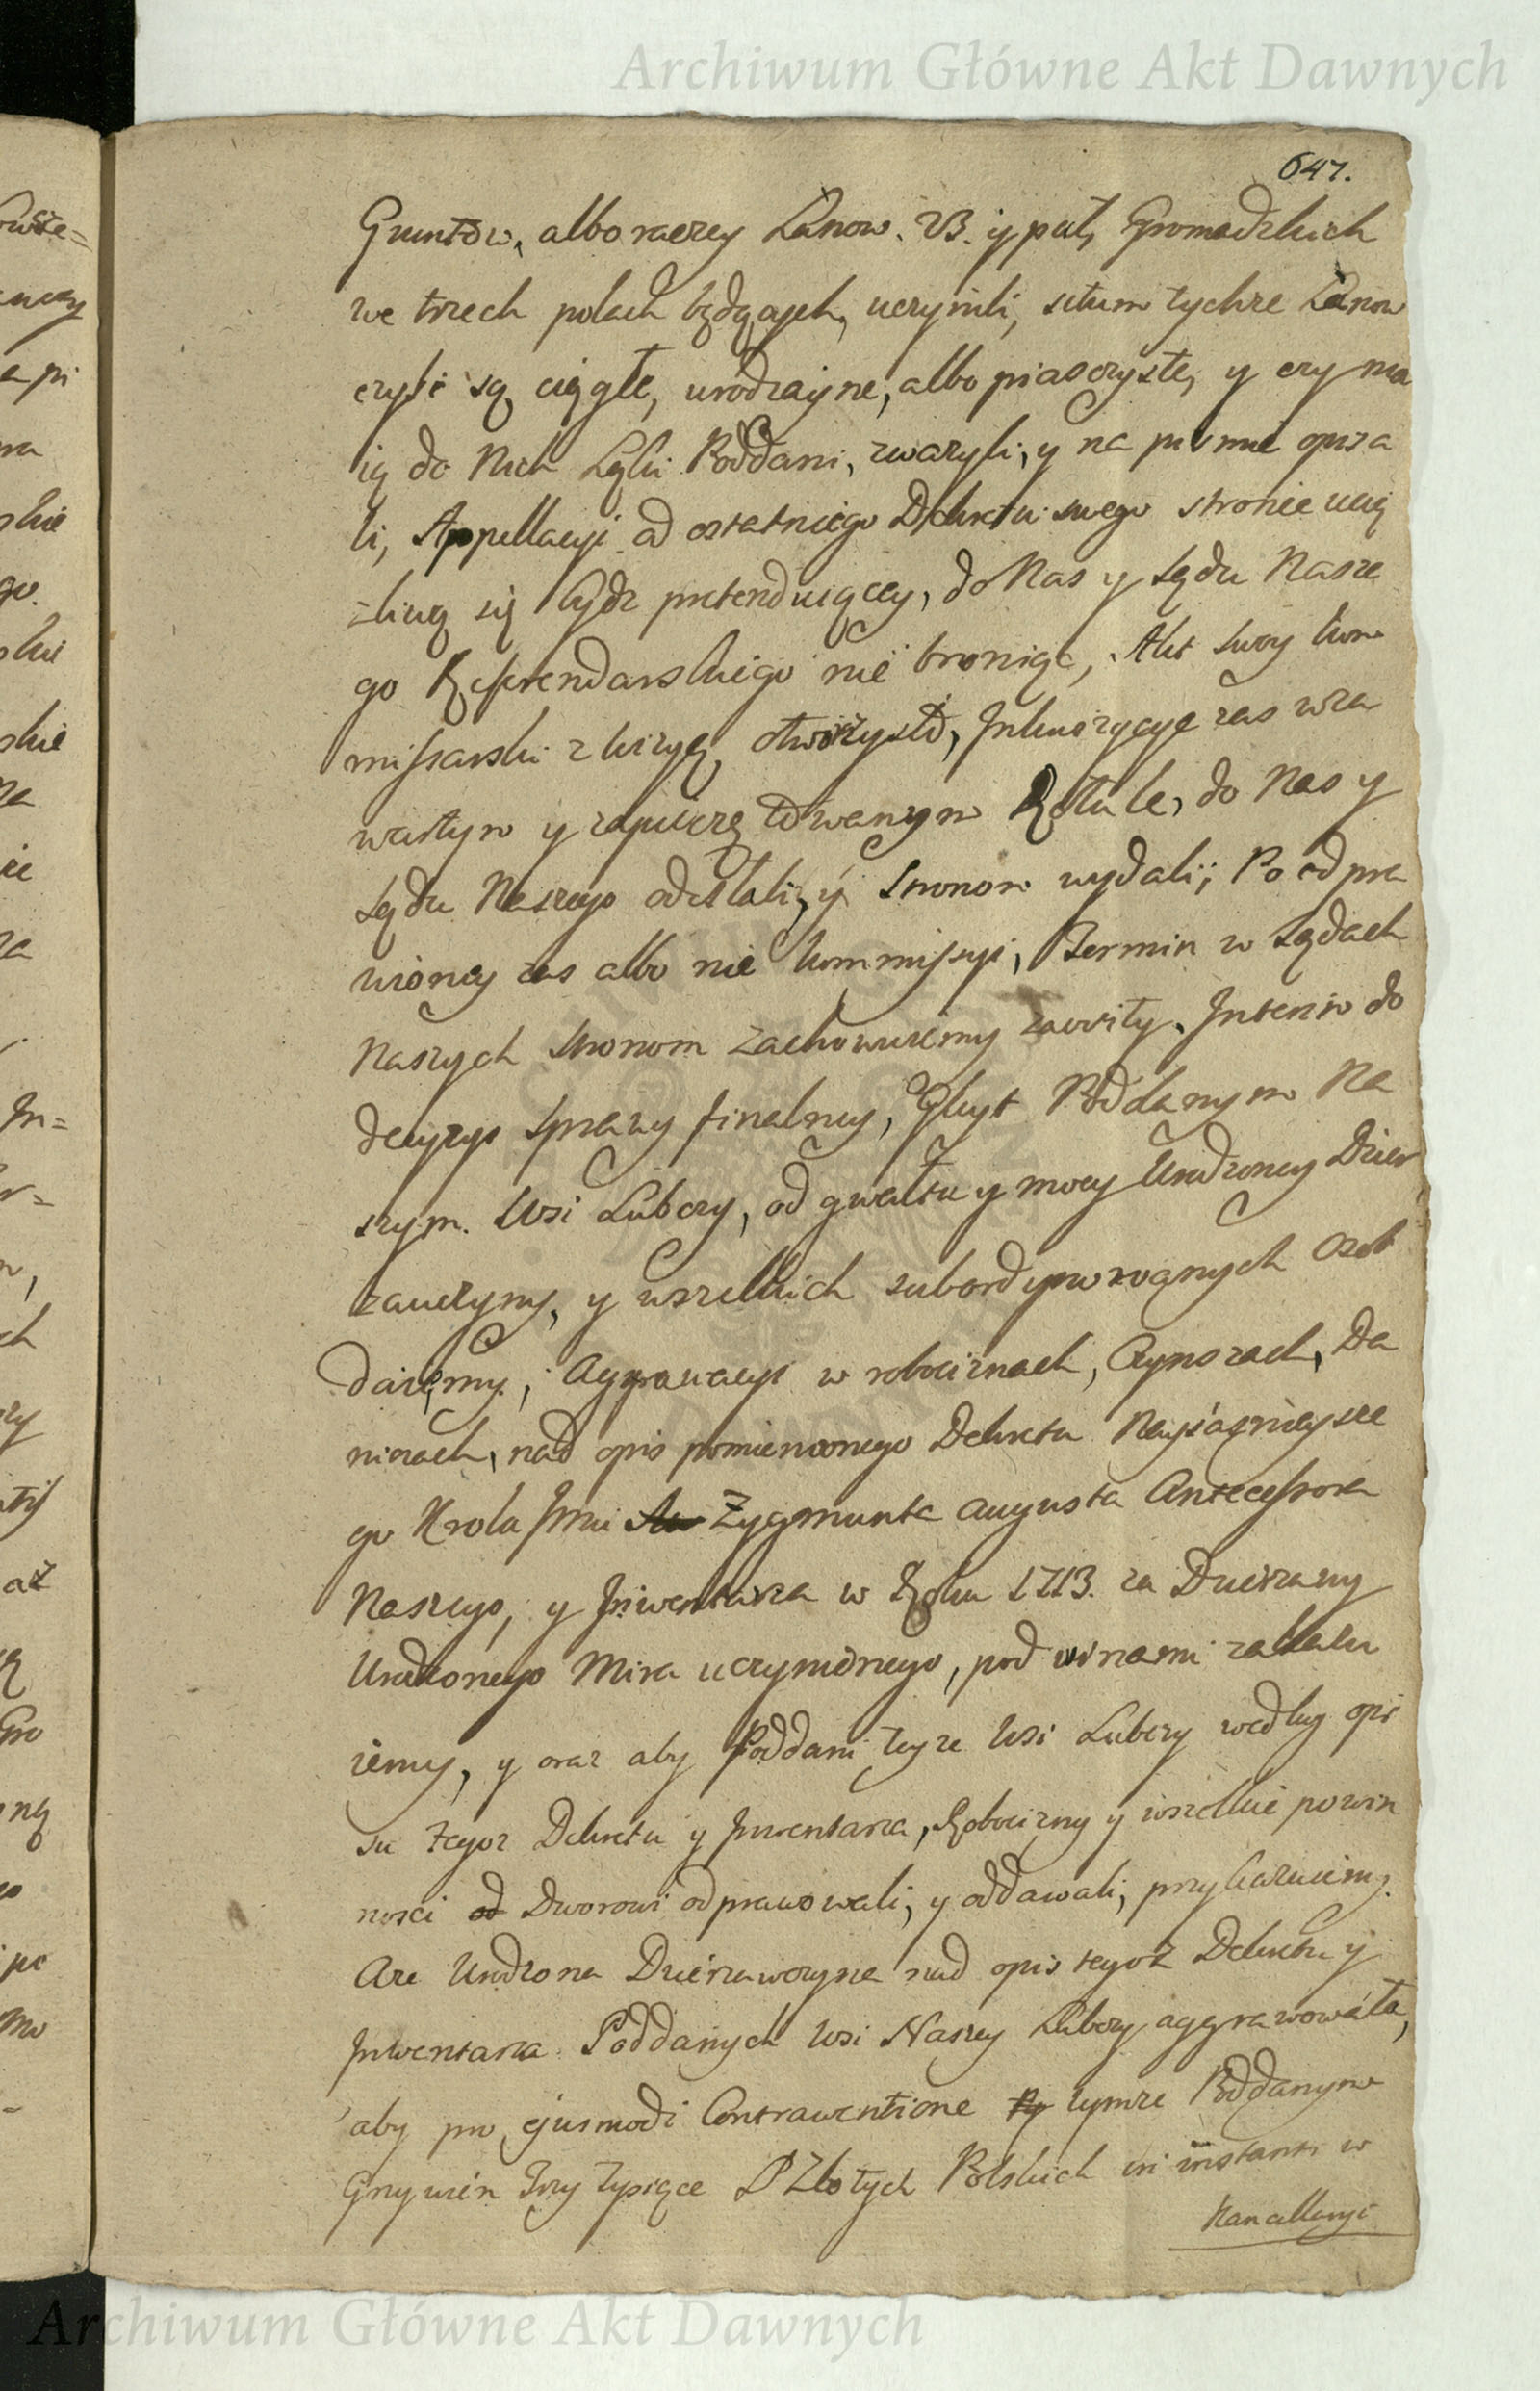 Archiwum Główne Akt Dawnych
647.
Gruntow, albo raczey Łanow. 23. y puł, Gromadzkich
we trzech polach będących, uczynili, situm tychże Łanow
czyli są ciągłe, urodzayne, albo piasczyste, y czy ma
ią do Nich Łąki Poddani, zwazyli, y na pismie opisa
li, Appellacyi od ostatniego Dekretu swego stronie ucią
zliwą się bydz pretenduiącey, do Nas y Sądu Nasze
go Refferendarskiego nie broniąc, Akt swoy kom
missarski z wizyą, otworzysto, Inkwizycyę zas w za
wartym y zapieczętowanym Rotule, do Nas y
Sądu Naszego odesłali, y Stronom wydali; Po odpra
wioney zas albo nie kommissyi, Termin w Sądach
Naszych Stronom zachowuiemy zawity. Interim do
decyzyi Sprawy finalney, Gleyt Poddanym Na
szym. Wsi Lubczy, od gwałtu y mocy Urodzoney Dzier
zawczyny, y wszelkich subordynowanych osob
daiemy, Aggrawacyi w robociznach, Czynszach, Da
ninach, nad opis pomienionego Dekretu Nayiasnieysze
go Krola Jmci Au Zygmunta Augusta Antecessora
Naszego, y Inwentarza w Roku 1713. za Dzierzawy
Urodzonego Mira uczynionego, pod winami zakazu
iemy, y oraz aby Poddani teyze Wsi Lubczy według opi
su tegoz Dekretu y Inwentarza, Robocizny y wszelkie powin
nosci od Dworowi odprawowali, y oddawali, przykazuiemy.
Aze Urodzona Dzierzawczyna nad opis tegoz Dekretu y
Inwentarza Poddanych Wsi Naszey Lubczy aggrawowała,
aby pro ejusmodi Contraventione Ty tymze Poddanym
Grzywien Trzy Tysiące Złotych Polskich in instanti w
Kancellaryi
Archiwum Główne Akt Dawnych